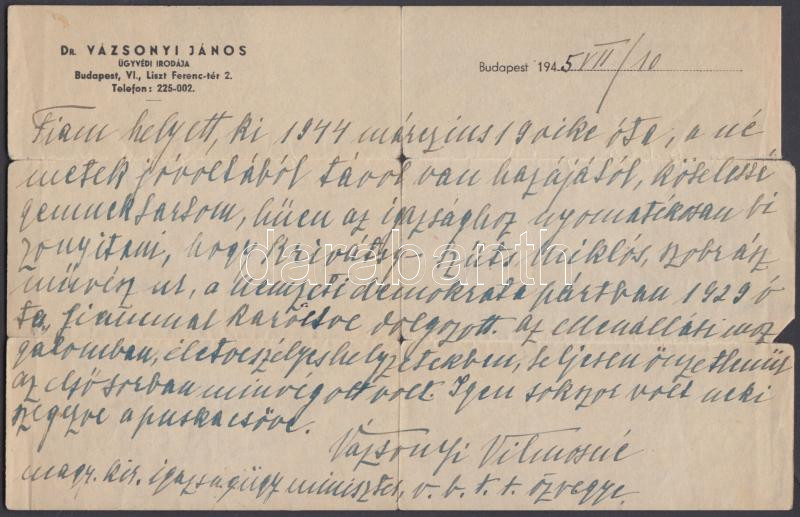 Dr. VÁZSONYI JÁNOS
ÜGYVÉDI IRODÁJA
Budapest, VI., Liszt Ferenc-tér 2.
Telefon: 225-002.
Budapest 1945 VII/10
Fiam helyett, ki 1944 március 19 ike óta, a né
metek jóvoltából távol van hazájától, kötelessé
gemnek tartom, hűen az igazsághoz nyomatékosan bi
zonyitani, hogy Krivátsy Szüts Miklós, szobrász
művész ur, a nemzeti demokrata pártban 1929 ó
ta, fiammal karöltve dolgozott. Az ellenállási moz
galomban, életveszélyes helyzetekben, teljesen önzetlenül
az első sorban minvégott volt. Igen sokszor volt neki
szegezve a puskacsöve.
Vázsonyi Vilmosné
magy. kir. igazságügy miniszter, v. b. t. t. özvegye.
darabanth